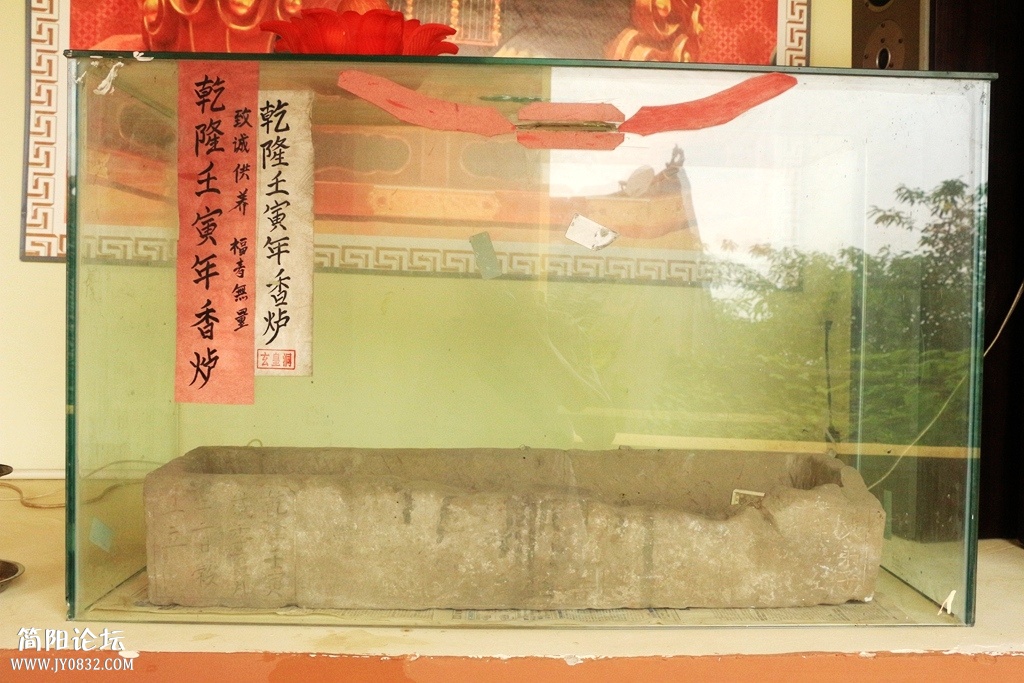 乾隆壬寅年香炉
致诚供养 福寿無量
乾隆壬寅年香炉
玄皇洞
简阳论坛
WWW.JY0832.COM